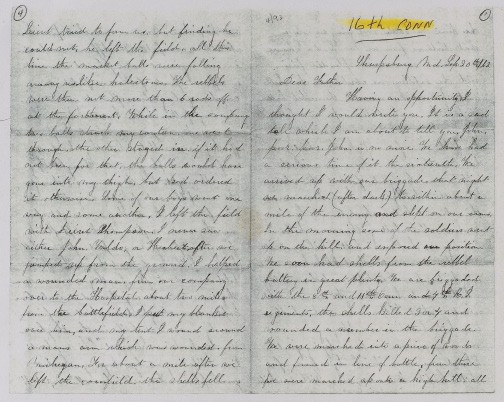 16th CONN
1
Sharpsburg Md. Sep 30th /62
Dear Father
Having an opportunity I
thought I would write you. It is a sad
tale which I am about to tell you, John,
poor dear John is no more. We have had
a serious time of it the sixteenth. We
arrived up with our brigade that night
and marched (after dark) to within about a
mile of the enemy and slept on our arms
In the morning some of the soldiers went
on the hills and exposed our position
We soon had shells from the rebel
battery in great plenty. We are brigaded
with the 8th and 11th Conn and 4th R. I.
regiments, the shells killed 3 or 4 and
wounded a number in the brigade.
We were marched into a piece of woods
and formed in line of battle, from there
we were marched up onto a high hill, all
4
Lieut tried to form us, but finding he
could not, he left the field. All this
time the musket balls were falling
among us like hailstones. The rebels
were then not more than 6 rods off
at the furthest. While in the
a ball struck my canteen
through the other
not been for that, the ball would have
gone into my thigh but God ordered
it otherwise. Some of our boys went one
way and some another. I left the field
with Lieut Thompson. I never saw
either John, or after we
jumped up from the ground. I helped
a wounded man from our company
over to the Hospital about two miles
from the battlefield. I put my blanket
over him, and my tent I wound around
a mans arm which was wounded, from
Michigan. For about a mile after we
left the cornfield the shells fell